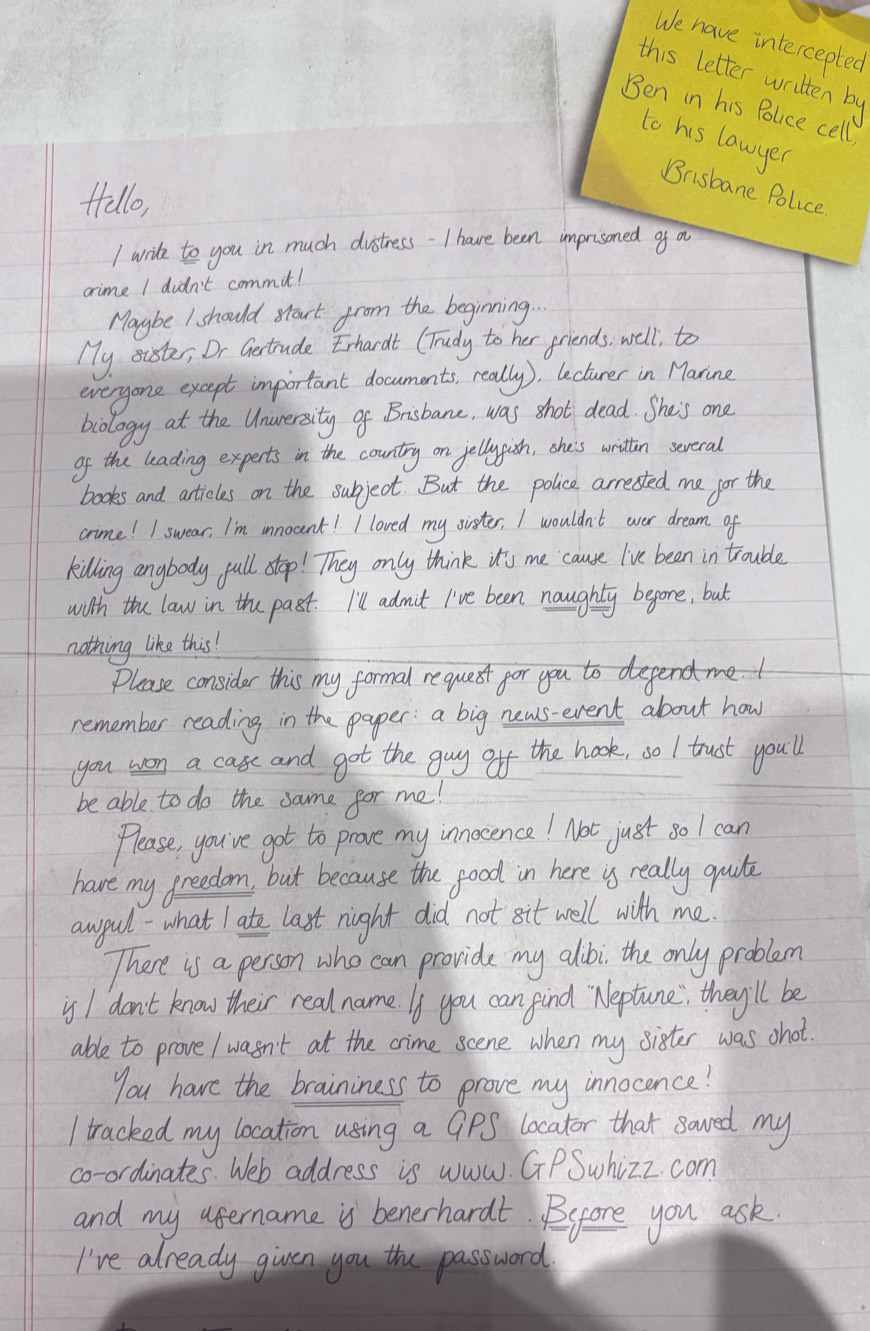 We have intercepted
this letter written by
Ben in his Police cell,
to his lawyer
Brisbane Police.
Hello,
I write to you in much distress - I have been imprisoned of a
crime I didn't commit!
Maybe I should start from the beginning...
My sister, Dr Gertrude Erhardt (Trudy to her friends, well, to
everyone except important documents, really), lecturer in Marine
biology at the University of Brisbane, was shot dead. She's one
of the leading experts in the country on jellyfish, she's written several
books and articles on the subject. But the police arrested me for the
crime! I swear, I'm innocent! I loved my sister, I wouldn't ever dream of
killing anybody full stop! They only think it's me 'cause I've been in trouble
with the law in the past. I'll admit I've been naughty before, but
nothing like this!
Please consider this my formal request for you to defend me. I
remember reading in the paper: a big news-event about how
you won a case and got the guy off the hook, so I trust you'll
be able to do the same for me!
Please, you've got to prove my innocence! Not just so I can
have my freedom, but because the food in here is really quite
awful - what I ate last night did not sit well with me.
There is a person who can provide my alibi, the only problem
is I don't know their real name. If you can find "Neptune", they'll be
able to prove I wasn't at the crime scene when my sister was shot.
You have the braininess to prove my innocence!
I tracked my location using a GPS locator that saved my
co-ordinates. Web address is www.GPSwhizz.com
and my username is benerhardt. Before you ask.
I've already given you the password.